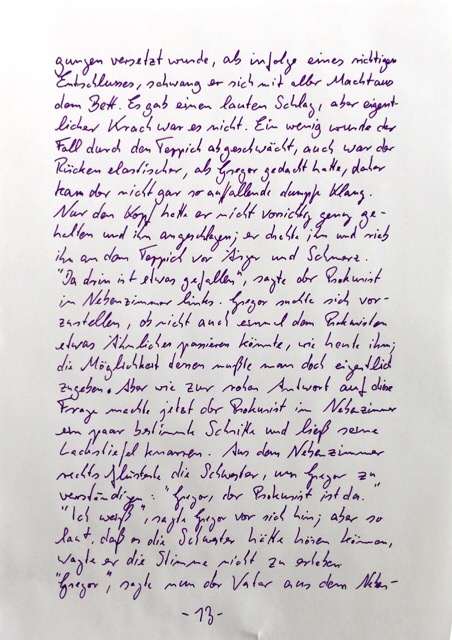 gungen versetzt wurde, als infolge eines richtigen
Entschlusses, schwang er sich mit aller Macht aus
dem Bett. Es gab einen lauten Schlag, aber eigent-
licher Krach war es nicht. Ein wenig wurde der
Fall durch den Teppich abgeschwächt, auch war der
Rücken elastischer, als Gregor gedacht hatte, daher
kam der nicht gar so auffallende dumpfe Klang.
Nur den Kopf hatte er nicht vorsichtig genug ge-
halten und ihn angeschlagen; er drehte ihn und rieb
ihn an dem Teppich vor Ärger und Schmerz.
"Da drin ist etwas gefallen", sagte der Prokurist
im Nebenzimmer links. Gregor suchte sich vor-
zustellen, ob nicht auch einmal dem Prokuristen
etwas Ähnliches passieren könnte, wie heute ihm;
die Möglichkeit dessen mußte man doch eigentlich
zugeben. Aber wie zur rohen Antwort auf diese
Frage machte jetzt der Prokurist im Nebenzimmer
ein paar bestimmte Schritte und ließ seine
Lackstiefel knarren. Aus dem Nebenzimmer
rechts flüsterte die Schwester, um Gregor zu
verständigen: "Gregor, der Prokurist ist da."
"Ich weiß", sagte Gregor vor sich hin; aber so
laut, daß es die Schwester hätte hören können,
wagte er die Stimme nicht zu erheben.
"Gregor", sagte nun der Vater aus dem Neben-
- 13 -